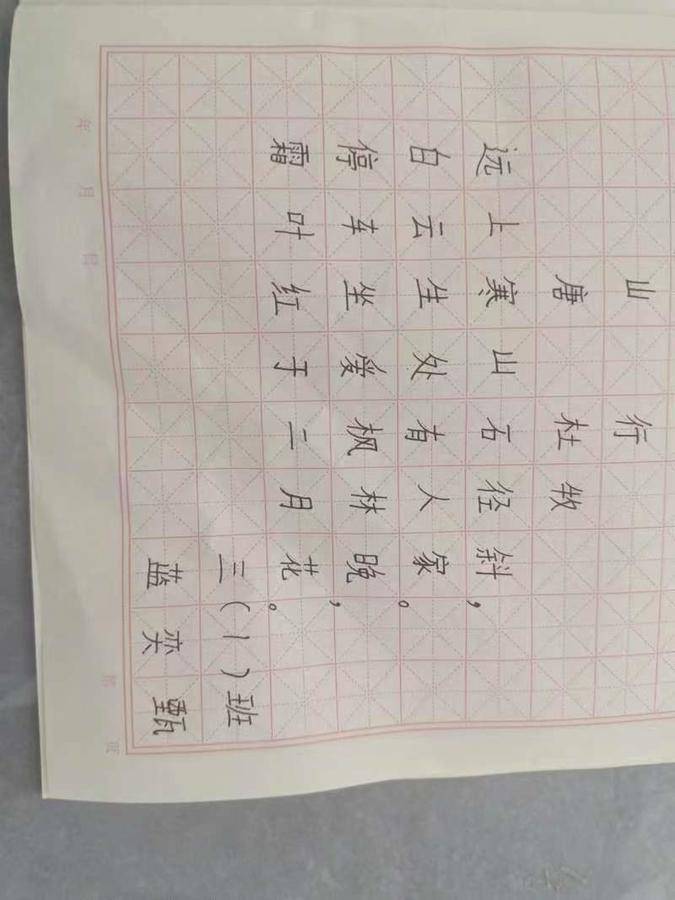 山行
唐 杜牧
远上寒山石径斜，
白云生处有人家。
停车坐爱枫林晚，
霜叶红于二月花。
三(1)班
蓝奕甄
年 月 日